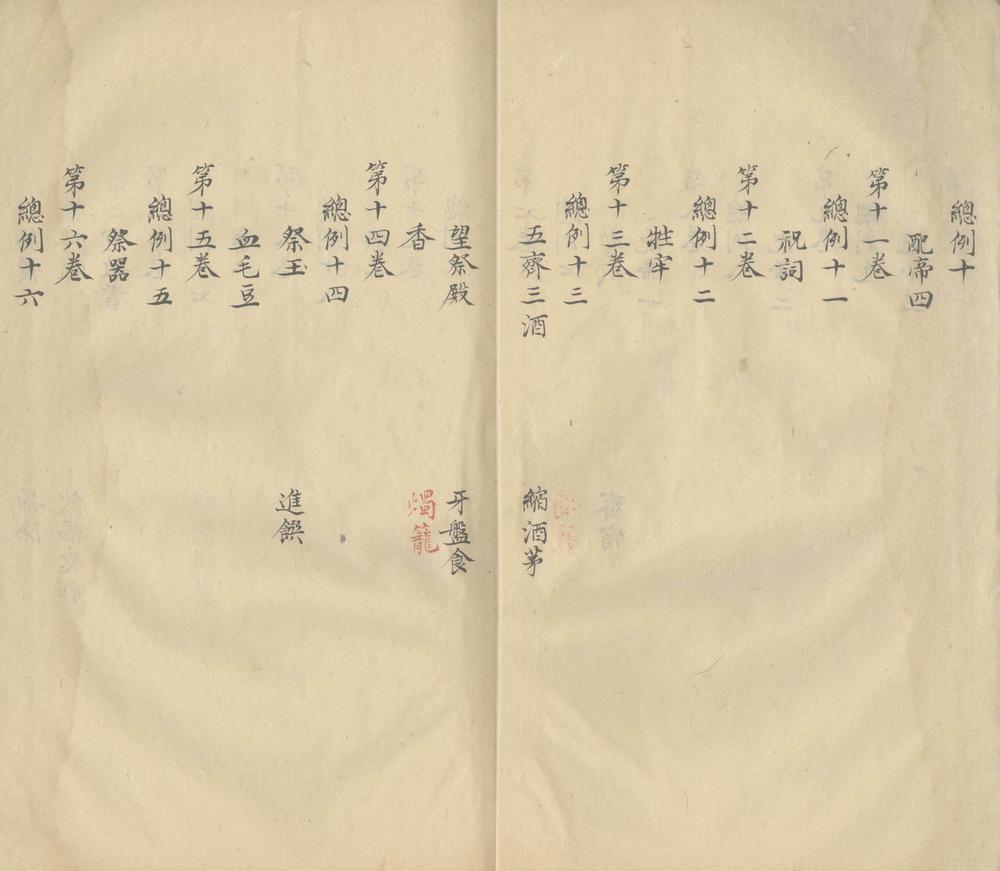 總例十
配帝四
第十一卷
總例十一
祝詞
第十二卷
總例十二
牲牢
第十三卷
總例十三
五齊三酒　縮酒茅
望祭殿　牙盤食
香　燭籠
第十四卷
總例十四
祭玉　進饌
血毛豆
第十五卷
總例十五
祭器
第十六卷
總例十六